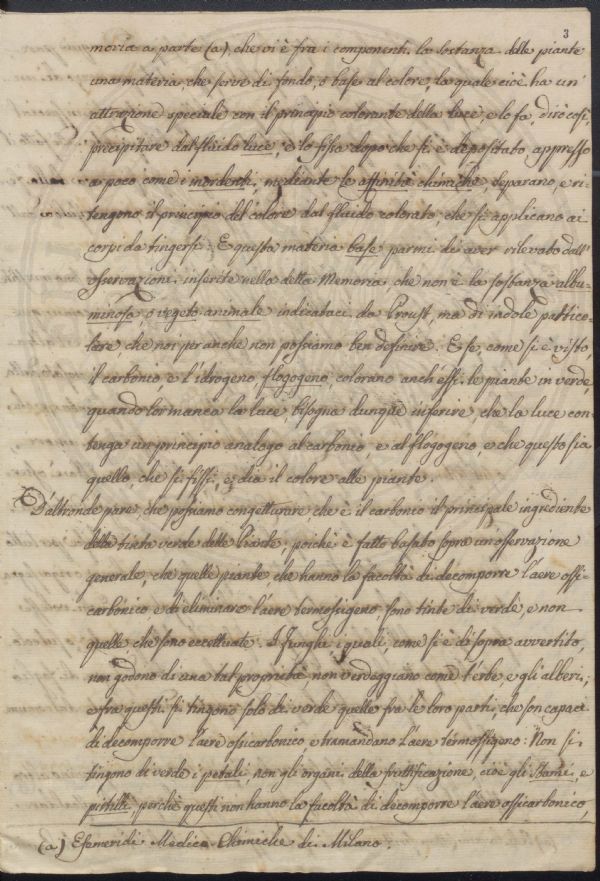 3
moria a parte (a), che vi è fra i componenti la sostanza delle piante
una materia che serve di fondo, o base al colore, la quale cioè ha un'
attrazione speciale con il principio colorante della luce, e lo fa, dirò così,
precipitare dal fluido luce, e lo fissa dopo che si è depositato appresso
a poco come i mordenti, mediante le affinità chimiche, separano, e ri-
tengono il principio del colore dal fluido colorato, che si applicano ai
corpi da tingersi. E questa materia base parmi di aver rilevato dall'
osservazioni inserite nella detta Memoria che non è la sostanza albu-
minosa, o vegeto animale indicataci da Proust, ma di indole partico-
lare, che noi per anche non possiamo ben definire. E se, come si è visto,
il carbonio, e l'idrogeno flogogeno colorano anch'essi le piante in verde,
quando lor manca la luce, bisogna dunque inferire, che la luce con-
tenga un principio analogo al carbonio, e al flogogeno, e che questo sia
quello, che si fissi, e dia il colore alle piante.
D'altronde pare, che possiamo congetturare che è il carbonio il principale ingrediente
della tinta verde delle Piante; poichè è fatto basato sopra un'osservazione
generale, che quelle piante, che hanno la facoltà di decomporre l'aere ossi-
carbonico e di eliminare l'aere termossigeno, sono tinte di verde, e non
quelle che sono eccettuate. I Funghi i quali, come si è di sopra avvertito,
non godono di una tal proprietà, non verdeggiano come l'erbe, e gli alberi;
e fra questi si tingono solo di verde quelle fra le loro parti, che son capaci
di decomporre l'aere ossicarbonico e tramandano l'aere termossigeno: Non si
tingono di verde i petali, non gli organi della fruttificazione, cioè gli stami, e
pistilli, perchè questi non hanno la facoltà di decomporre l'aere ossicarbonico,
(a) Efemeridi Medico-Chimiche di Milano.